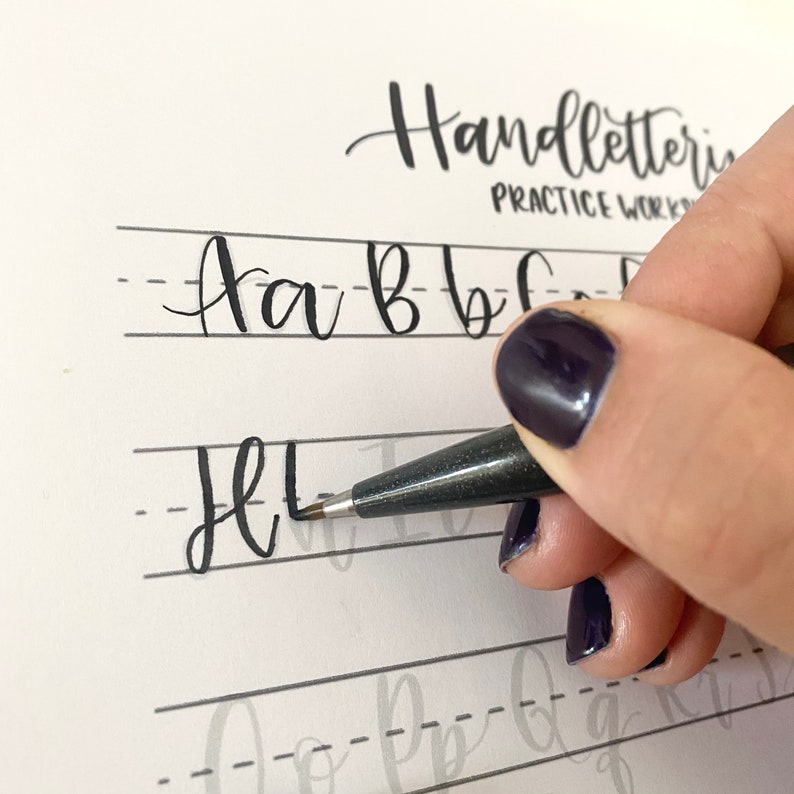 Handletterin
PRACTICE WORKS
Aa B b C
H h I
O o P p Q q R r